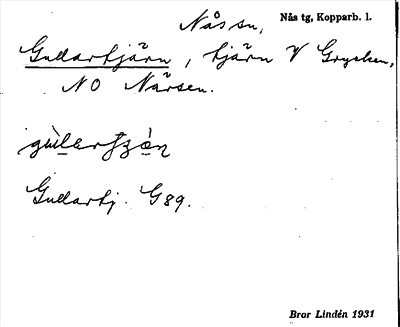 Nås sn, Nås tg, Kopparb. l.
Gullartjärn, tjärn V Grycken,
NO Närsen.
Gullartj. G89.
Bror Lindén 1931